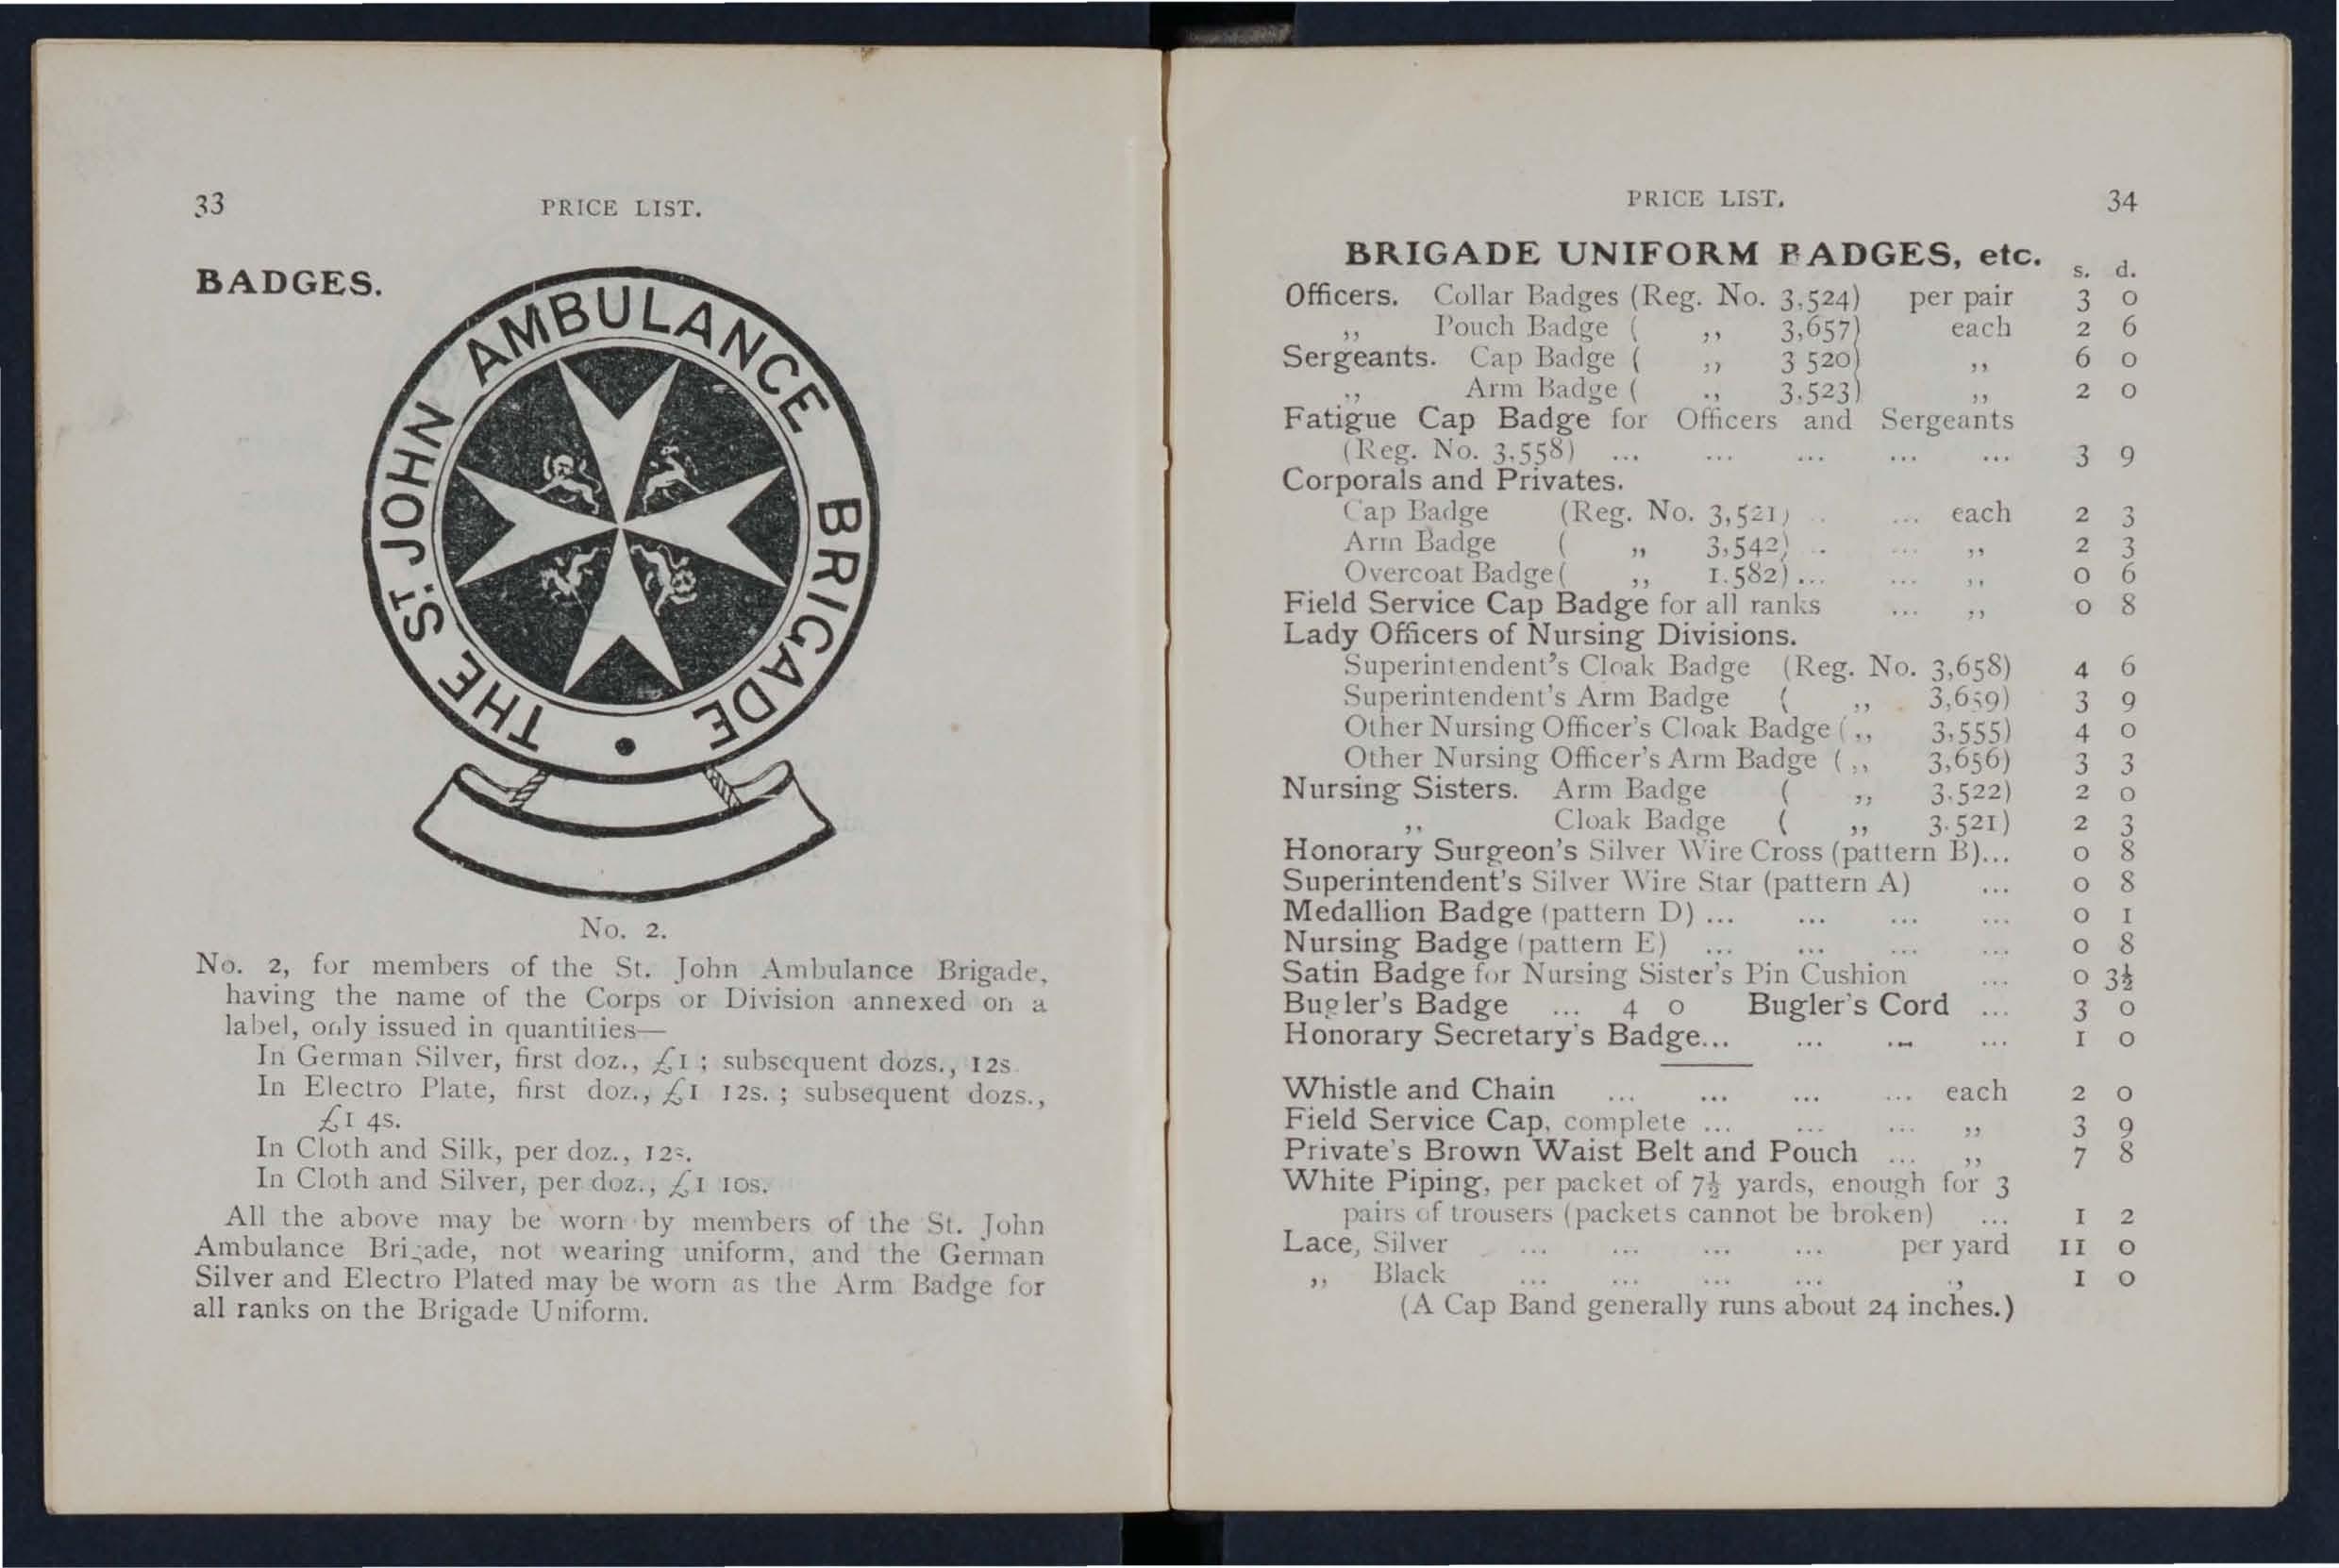 33
PRICE LIST.
BADGES.
THE ST. JOHN AMBULANCE BRIGADE
No. 2.
No. 2, for members of the St. John Ambulance Brigade,
having the name of the Corps or Division annexed on a
label, only issued in quantities—
In German Silver, first doz., £1 ; subsequent dozs., 12s.
In Electro Plate, first doz., £1 12s. ; subsequent dozs.,
£1 4s.
In Cloth and Silk, per doz., 12s.
In Cloth and Silver, per doz., £1 10s.
All the above may be worn by members of the St. John
Ambulance Brigade, not wearing uniform, and the German
Silver and Electro Plated may be worn as the Arm Badge for
all ranks on the Brigade Uniform.
PRICE LIST.
34
BRIGADE UNIFORM BADGES, etc.
s. d.
Officers. Collar Badges (Reg. No. 3,524) per pair 3 0
,, Pouch Badge ( ,, 3,657) each 2 6
Sergeants. Cap Badge ( ,, 3 520) ,, 6 0
,, Arm Badge ( ,, 3,523) ,, 2 0
Fatigue Cap Badge for Officers and Sergeants
(Reg. No. 3,558) ... ... ... ... ... 3 9
Corporals and Privates.
Cap Badge (Reg. No. 3,521) .. ... each 2 3
Arm Badge ( ,, 3,542) .. ... ,, 2 3
Overcoat Badge ( ,, 1.582) ... ... ,, 0 6
Field Service Cap Badge for all ranks ... ,, 0 8
Lady Officers of Nursing Divisions.
Superintendent's Cloak Badge (Reg. No. 3,658) 4 6
Superintendent's Arm Badge ( ,, 3,659) 3 9
Other Nursing Officer's Cloak Badge ( ,, 3,555) 4 0
Other Nursing Officer's Arm Badge ( ,, 3,656) 3 3
Nursing Sisters. Arm Badge ( ,, 3.522) 2 0
,, Cloak Badge ( ,, 3.521) 2 3
Honorary Surgeon's Silver Wire Cross (pattern B)... 0 8
Superintendent's Silver Wire Star (pattern A) ... 0 8
Medallion Badge (pattern D) ... ... ... ... 0 1
Nursing Badge (pattern E) ... ... ... ... 0 8
Satin Badge for Nursing Sister's Pin Cushion ... 0 3½
Bugler's Badge ... 4 0 Bugler's Cord ... 3 0
Honorary Secretary's Badge... ... ... ... 1 0
Whistle and Chain ... ... ... ... each 2 0
Field Service Cap, complete ... ... ... ,, 3 9
Private's Brown Waist Belt and Pouch ... ,, 7 8
White Piping, per packet of 7½ yards, enough for 3
pairs of trousers (packets cannot be broken) ... 1 2
Lace, Silver ... ... ... ... per yard 11 0
,, Black ... ... ... ... ,, 1 0
(A Cap Band generally runs about 24 inches.)